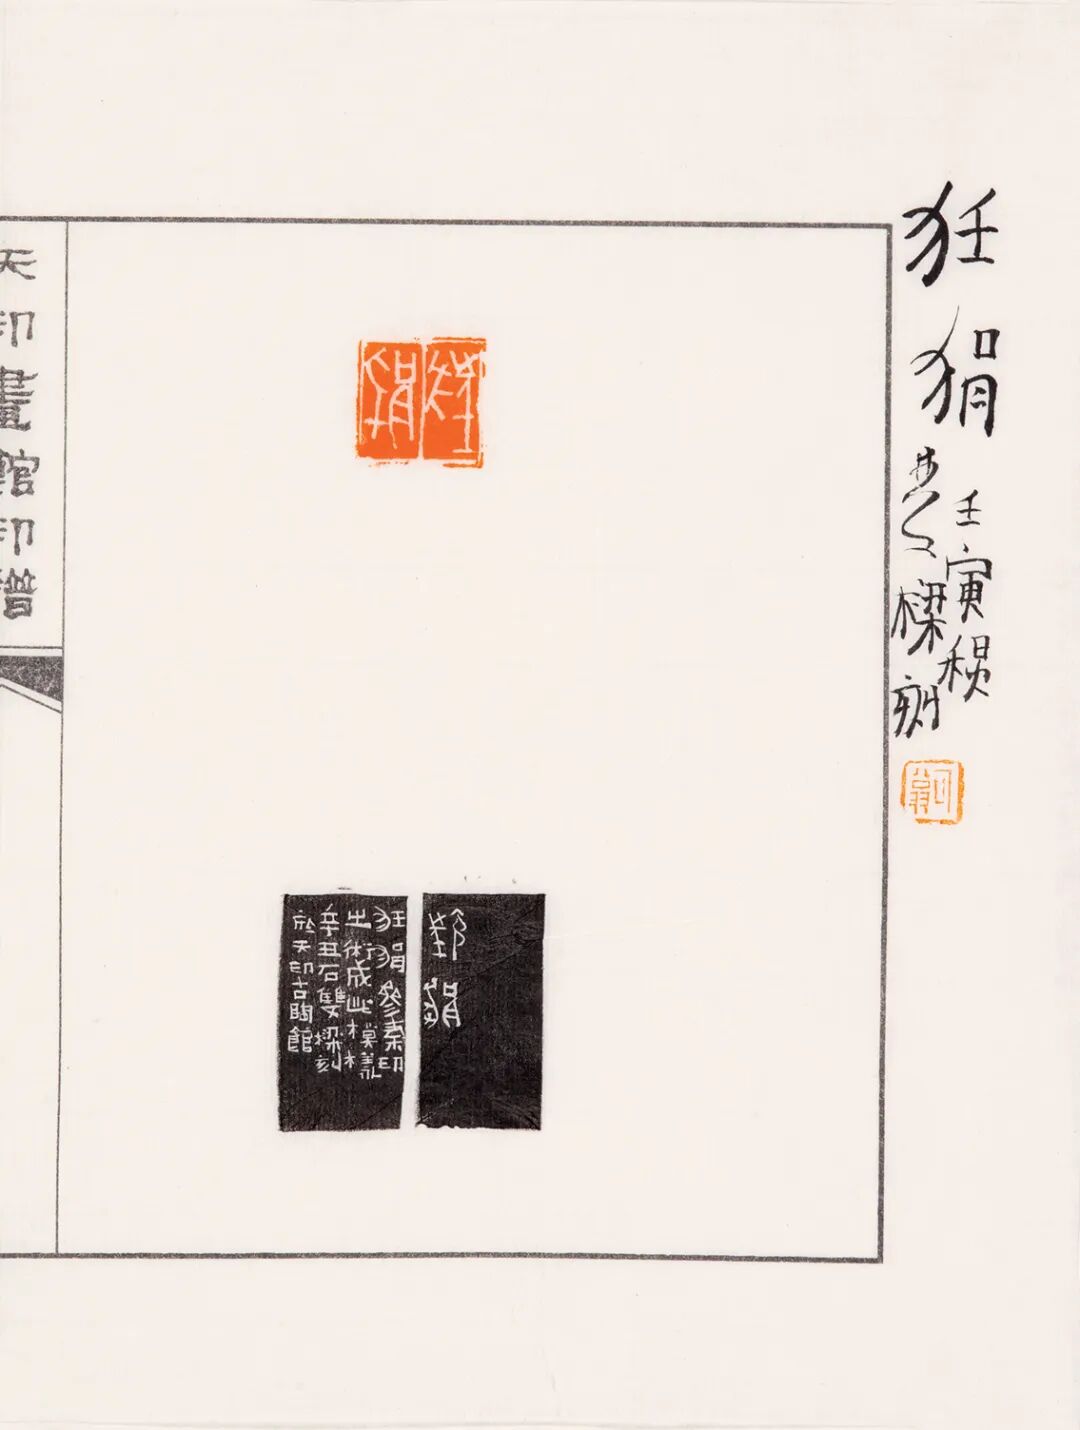 狂狷
壬寅穐
雙樑刻
狂狷
狂狷
狂狷參秦印
之術成此模樣
辛丑石雙樑刻
於天印古陶館
天印畫館印譜